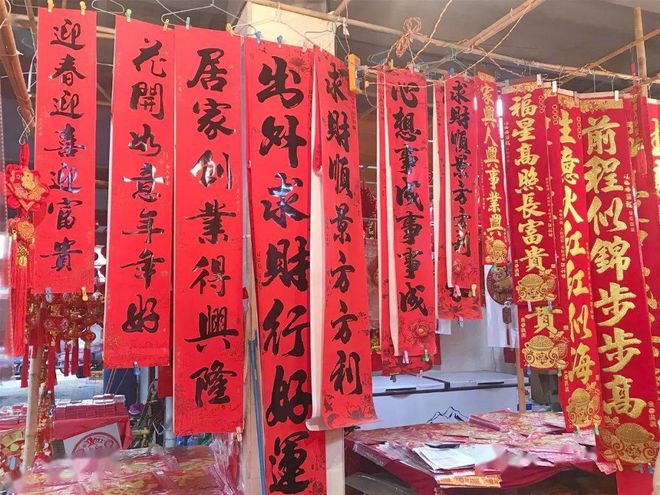 迎春迎喜迎富貴
花開如意年年好
居家創業得興隆
出外求財行好運
求財順景方方利
心想事成事事成
求財順景方方利
家興人興事業興
福星高照長富貴
生意火红红似海
前程似錦步步高